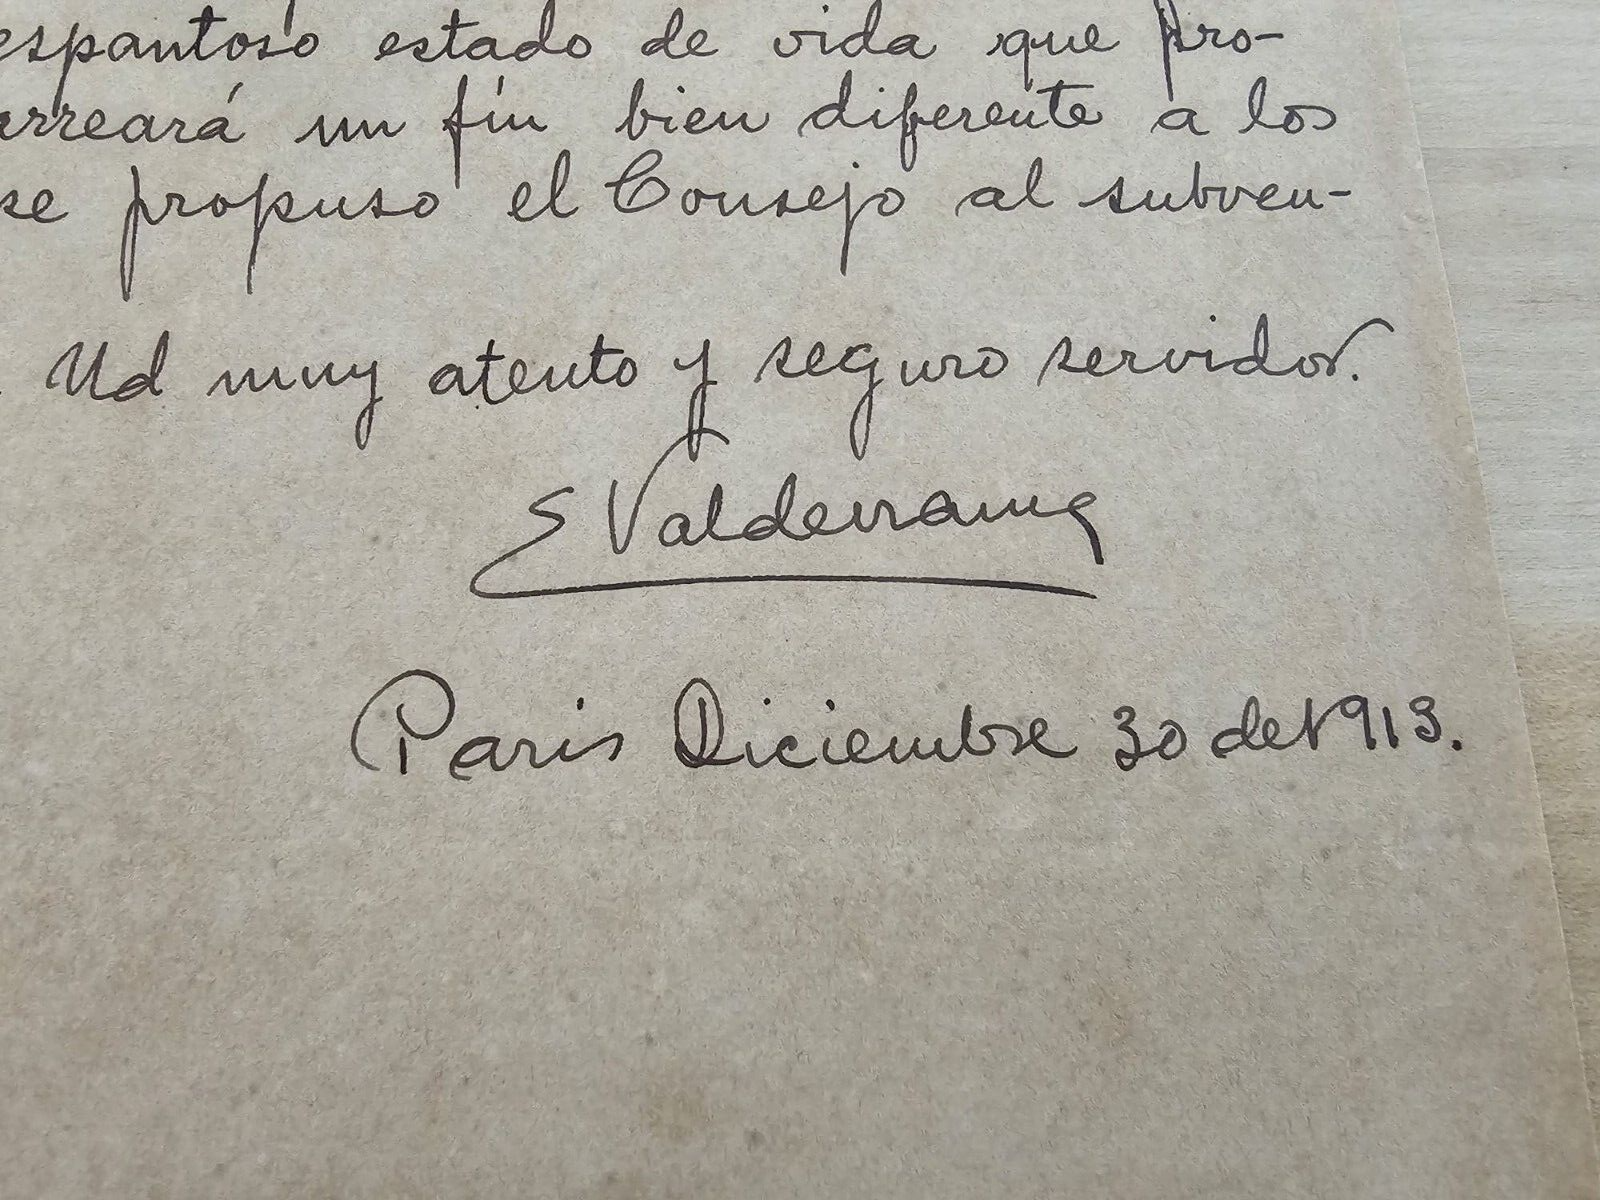 espantoso estado de vida que pro-
arreará un fín bien diferente a los
se propuso el Consejo al subven-
Ud muy atento y seguro servidor.
E Valderrama
Paris Diciembre 30 de 1913.